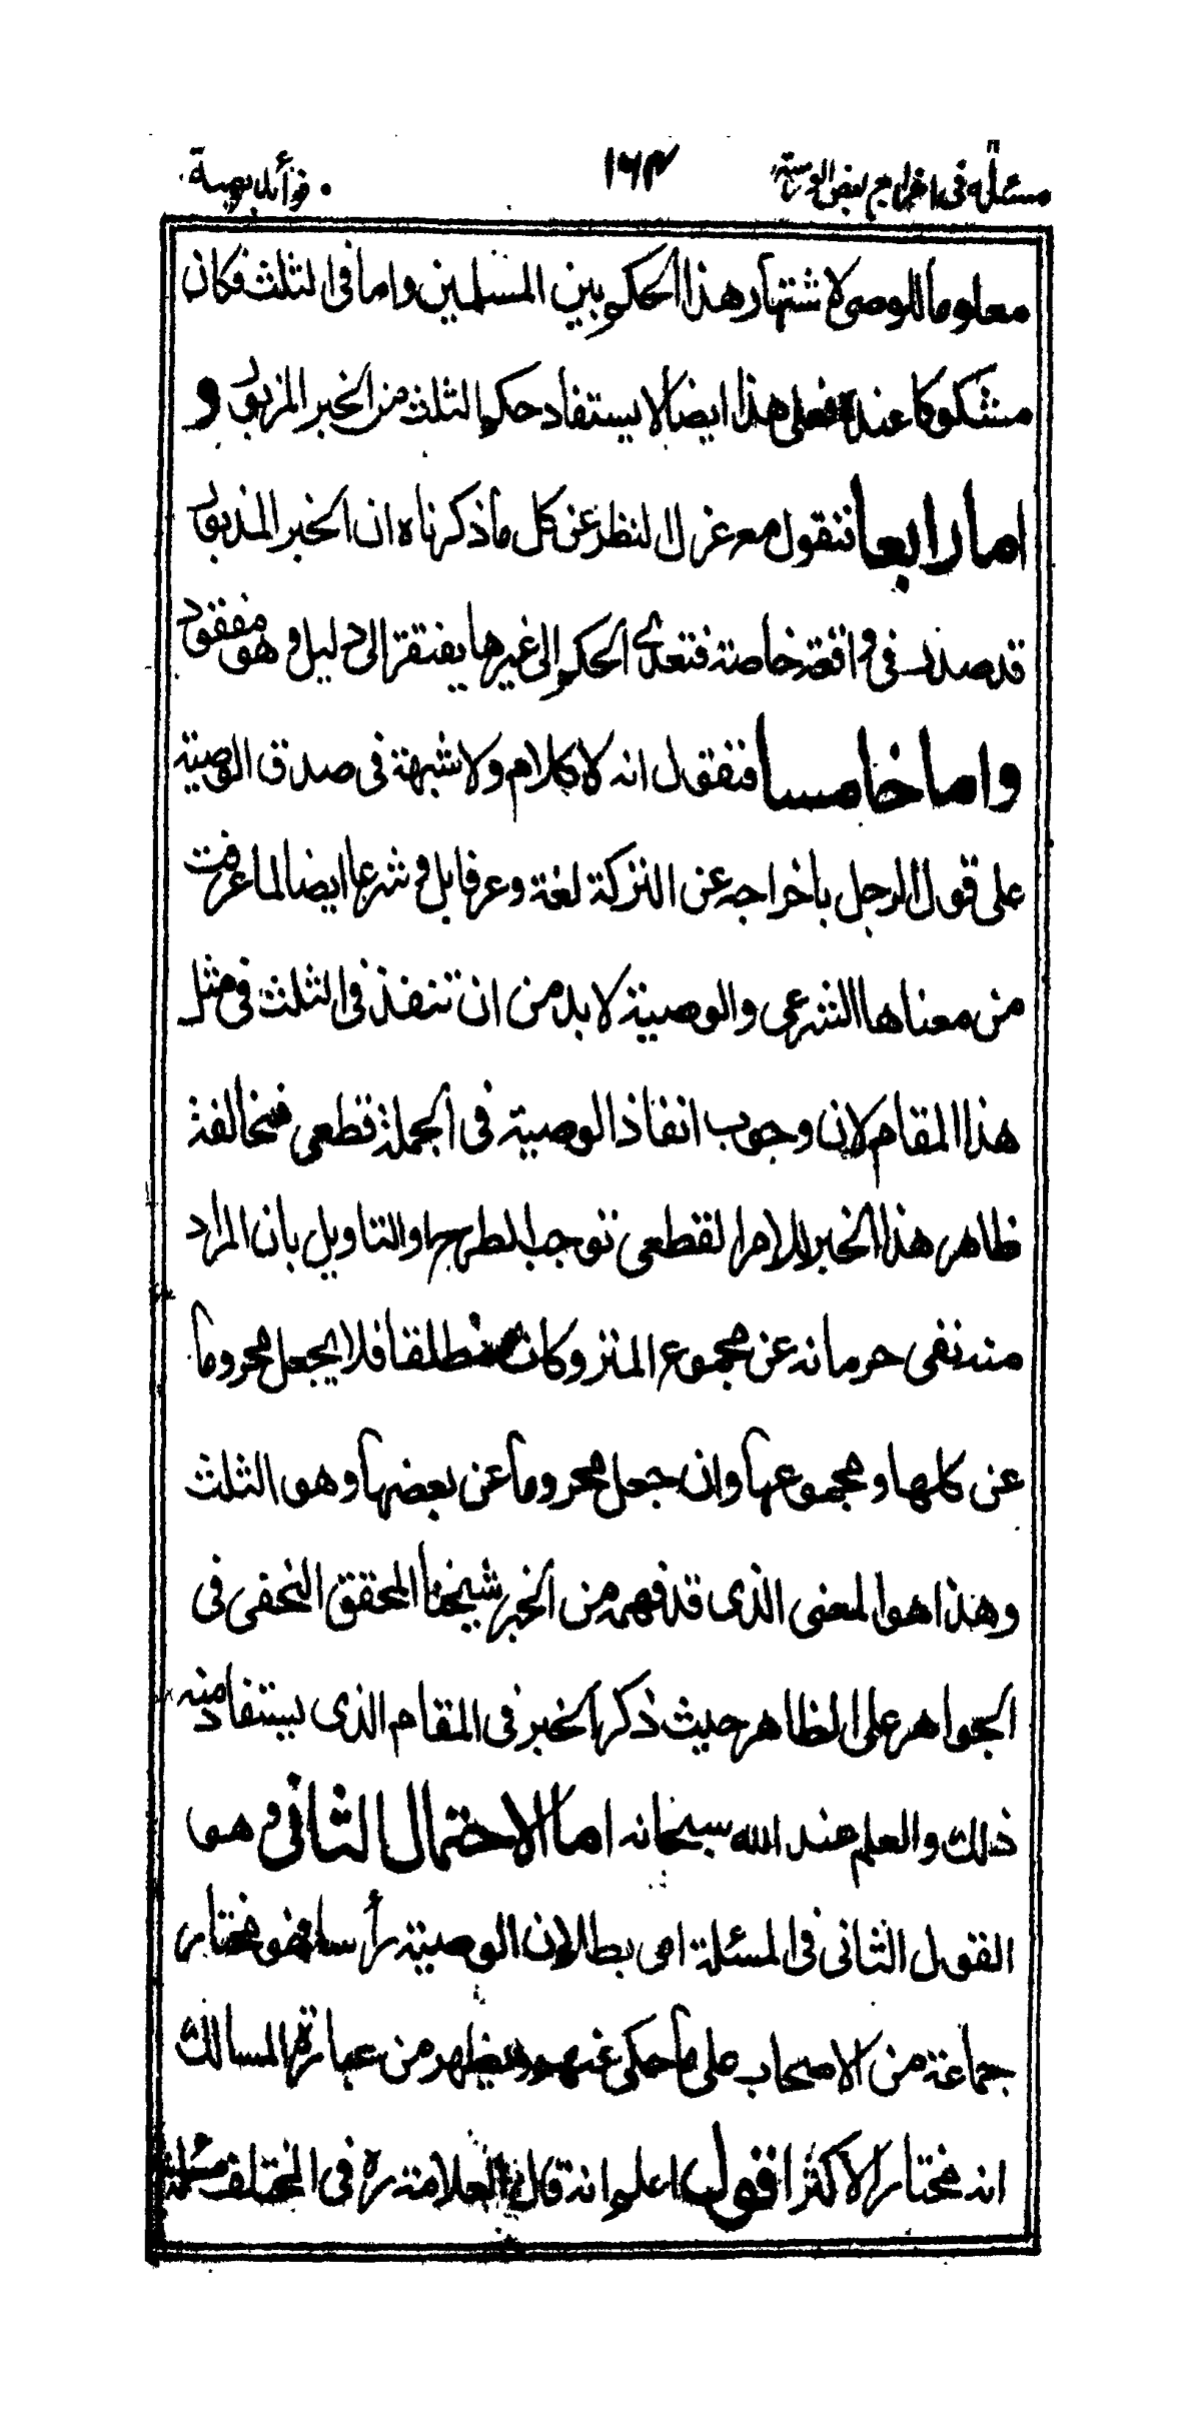 مسئلة فى اخراج بعض الورثة ١٦٣ فوائد بهية
معلوما للوصى لاشتهار هذا الحكم بين المسلمين واما فى الثلث فكان
مشكوكا عنده فعلى هذا ايضا لا يستفاد حكم الثلث من الخبر المزبور و
اما رابعا فنقول مع غزل النظر عن كل ما ذكرناه ان الخبر المذبور
قد صدر فى واقعة خاصة فتعدى الحكم الى غيرها يفتقر الى دليل و هو مفقود
واما خامسا فنقول انه لا كلام ولا شبهة فى صدق الوصية
على قول الرجل باخراجه عن التركة لغة وعرفا بل و شرعا ايضا لما عرفت
من معناها الشرعى والوصية لابد من ان تنفذ فى الثلث فى مثل
هذا المقام لان وجوب انفاذ الوصية فى الجملة قطعى فمخالفة
ظاهر هذا الخبر للامر القطعى توجب الطرح او التاويل بان المراد
منه نفى حرمانه عن مجموع المتروكات مطلقا فلا يجعل محروما
عن كلها و مجموعها وان جعل محروما عن بعضها وهو الثلث
وهذا هو المعنى الذى قد فهمه من الخبر شيخنا المحقق النجفى فى
الجواهر على الظاهر حيث ذكر الخبر فى المقام الذى يستفاد منه
ذلك والعلم عند الله سبحانه اما الاحتمال الثانى و هو
القول الثانى فى المسئلة اى بطلان الوصية رأسا فهو مختار
جماعة من الاصحاب على ما حكى عنهم ويظهر من عبارة المسالك
انه مختار الاكثر اقول اعلم انه قال العلامة ره فى المختلف مسئلة